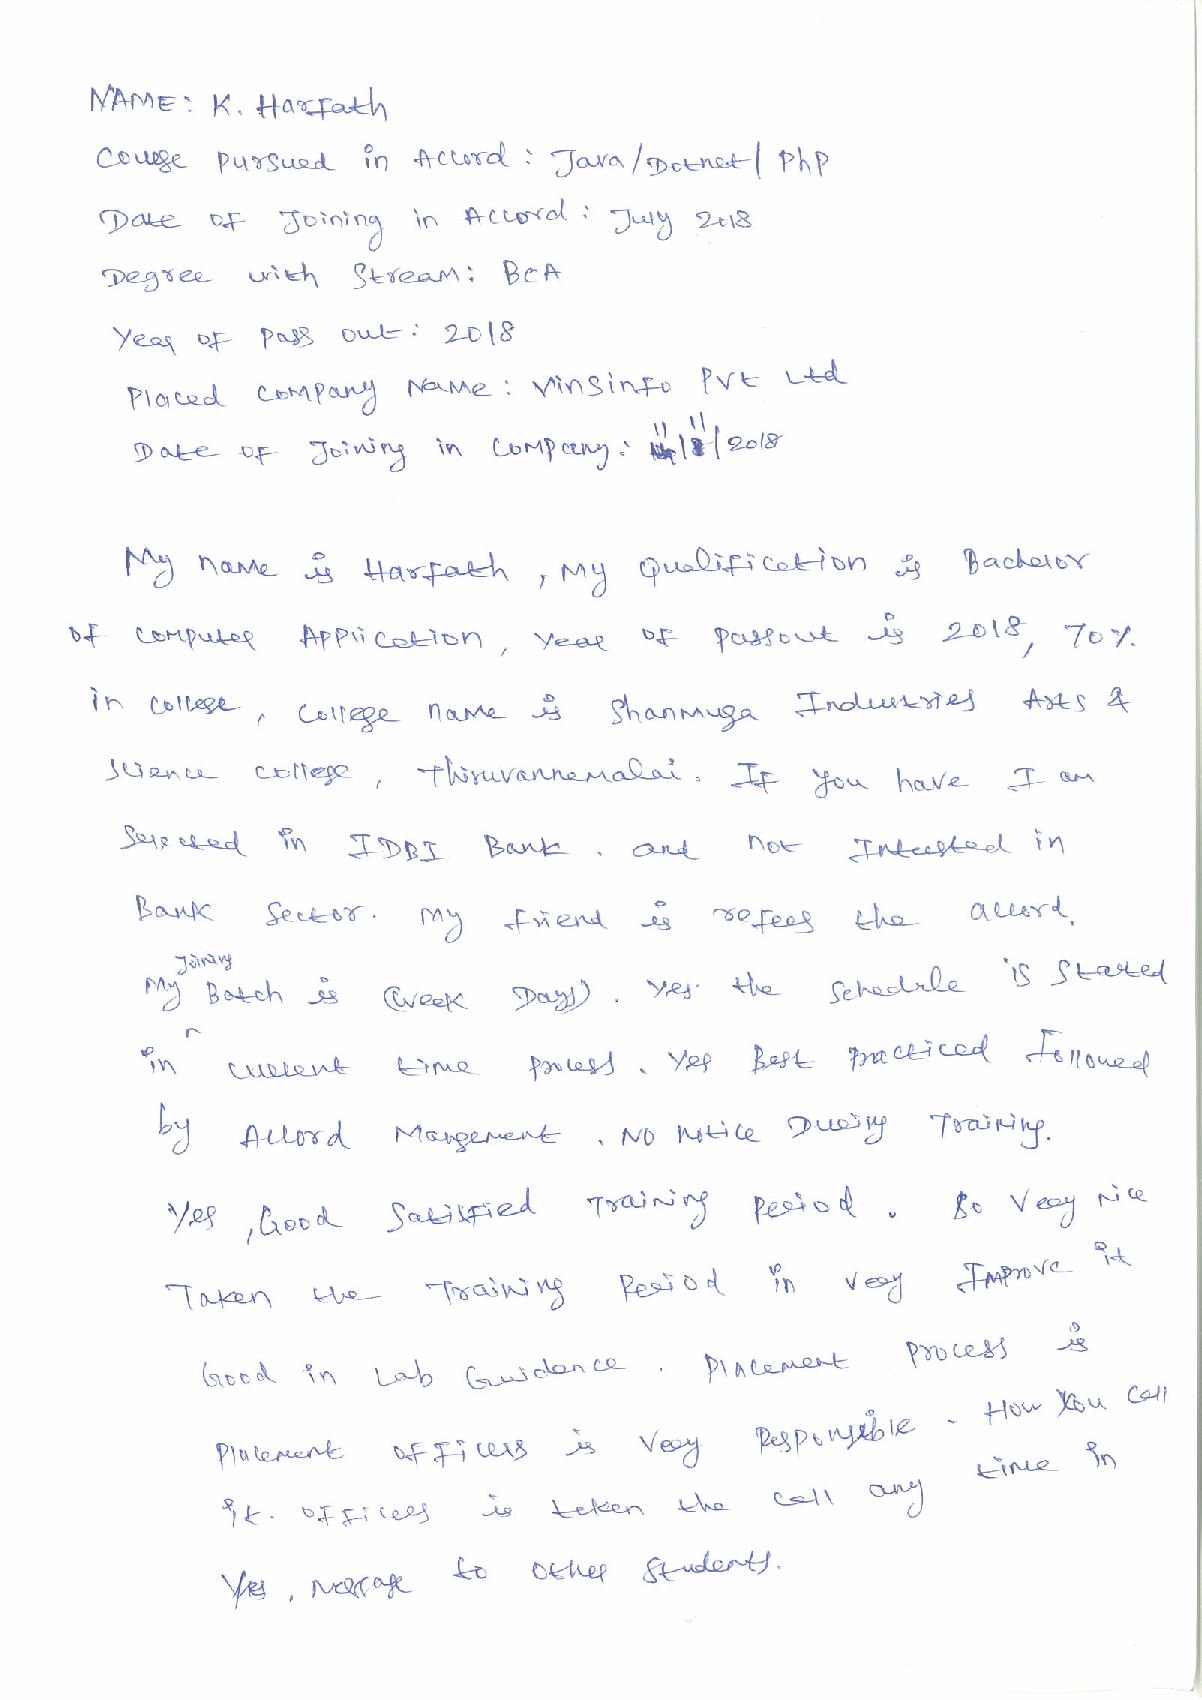 NAME: K. Harfath
Course pursued in Accord: Java/Dotnet/PhP
Date of Joining in Accord: July 2018
Degree with Stream: BCA
Year of pass out: 2018
Placed company Name: Vinsinfo Pvt Ltd
Date of Joining in Company: 11/11/2018
My name is Harfath, My Qualification is Bachelor
of computer Application, year of passout is 2018, 70%
in college, College name is Shanmuga Industries Arts &
Science college, Thiruvannamalai. If you have I am
Selected in IDBI Bank. and not Intrested in
Bank Sector. My friend is refees the accord.
My Joining Batch is (Week Days). Yes. the Schedule is Started
in current time process. Yes Best practiced Followed
by Accord Mangement. No Notice During Training.
Yes, Good Satisfied Training Period. So Very nice
Taken the Training Period in very Improve it
Good in Lab Guidance. Placement process is
Placement officers is Very Responsible. How You call
it. officers is taken the call any time in
Yes, message to other students.